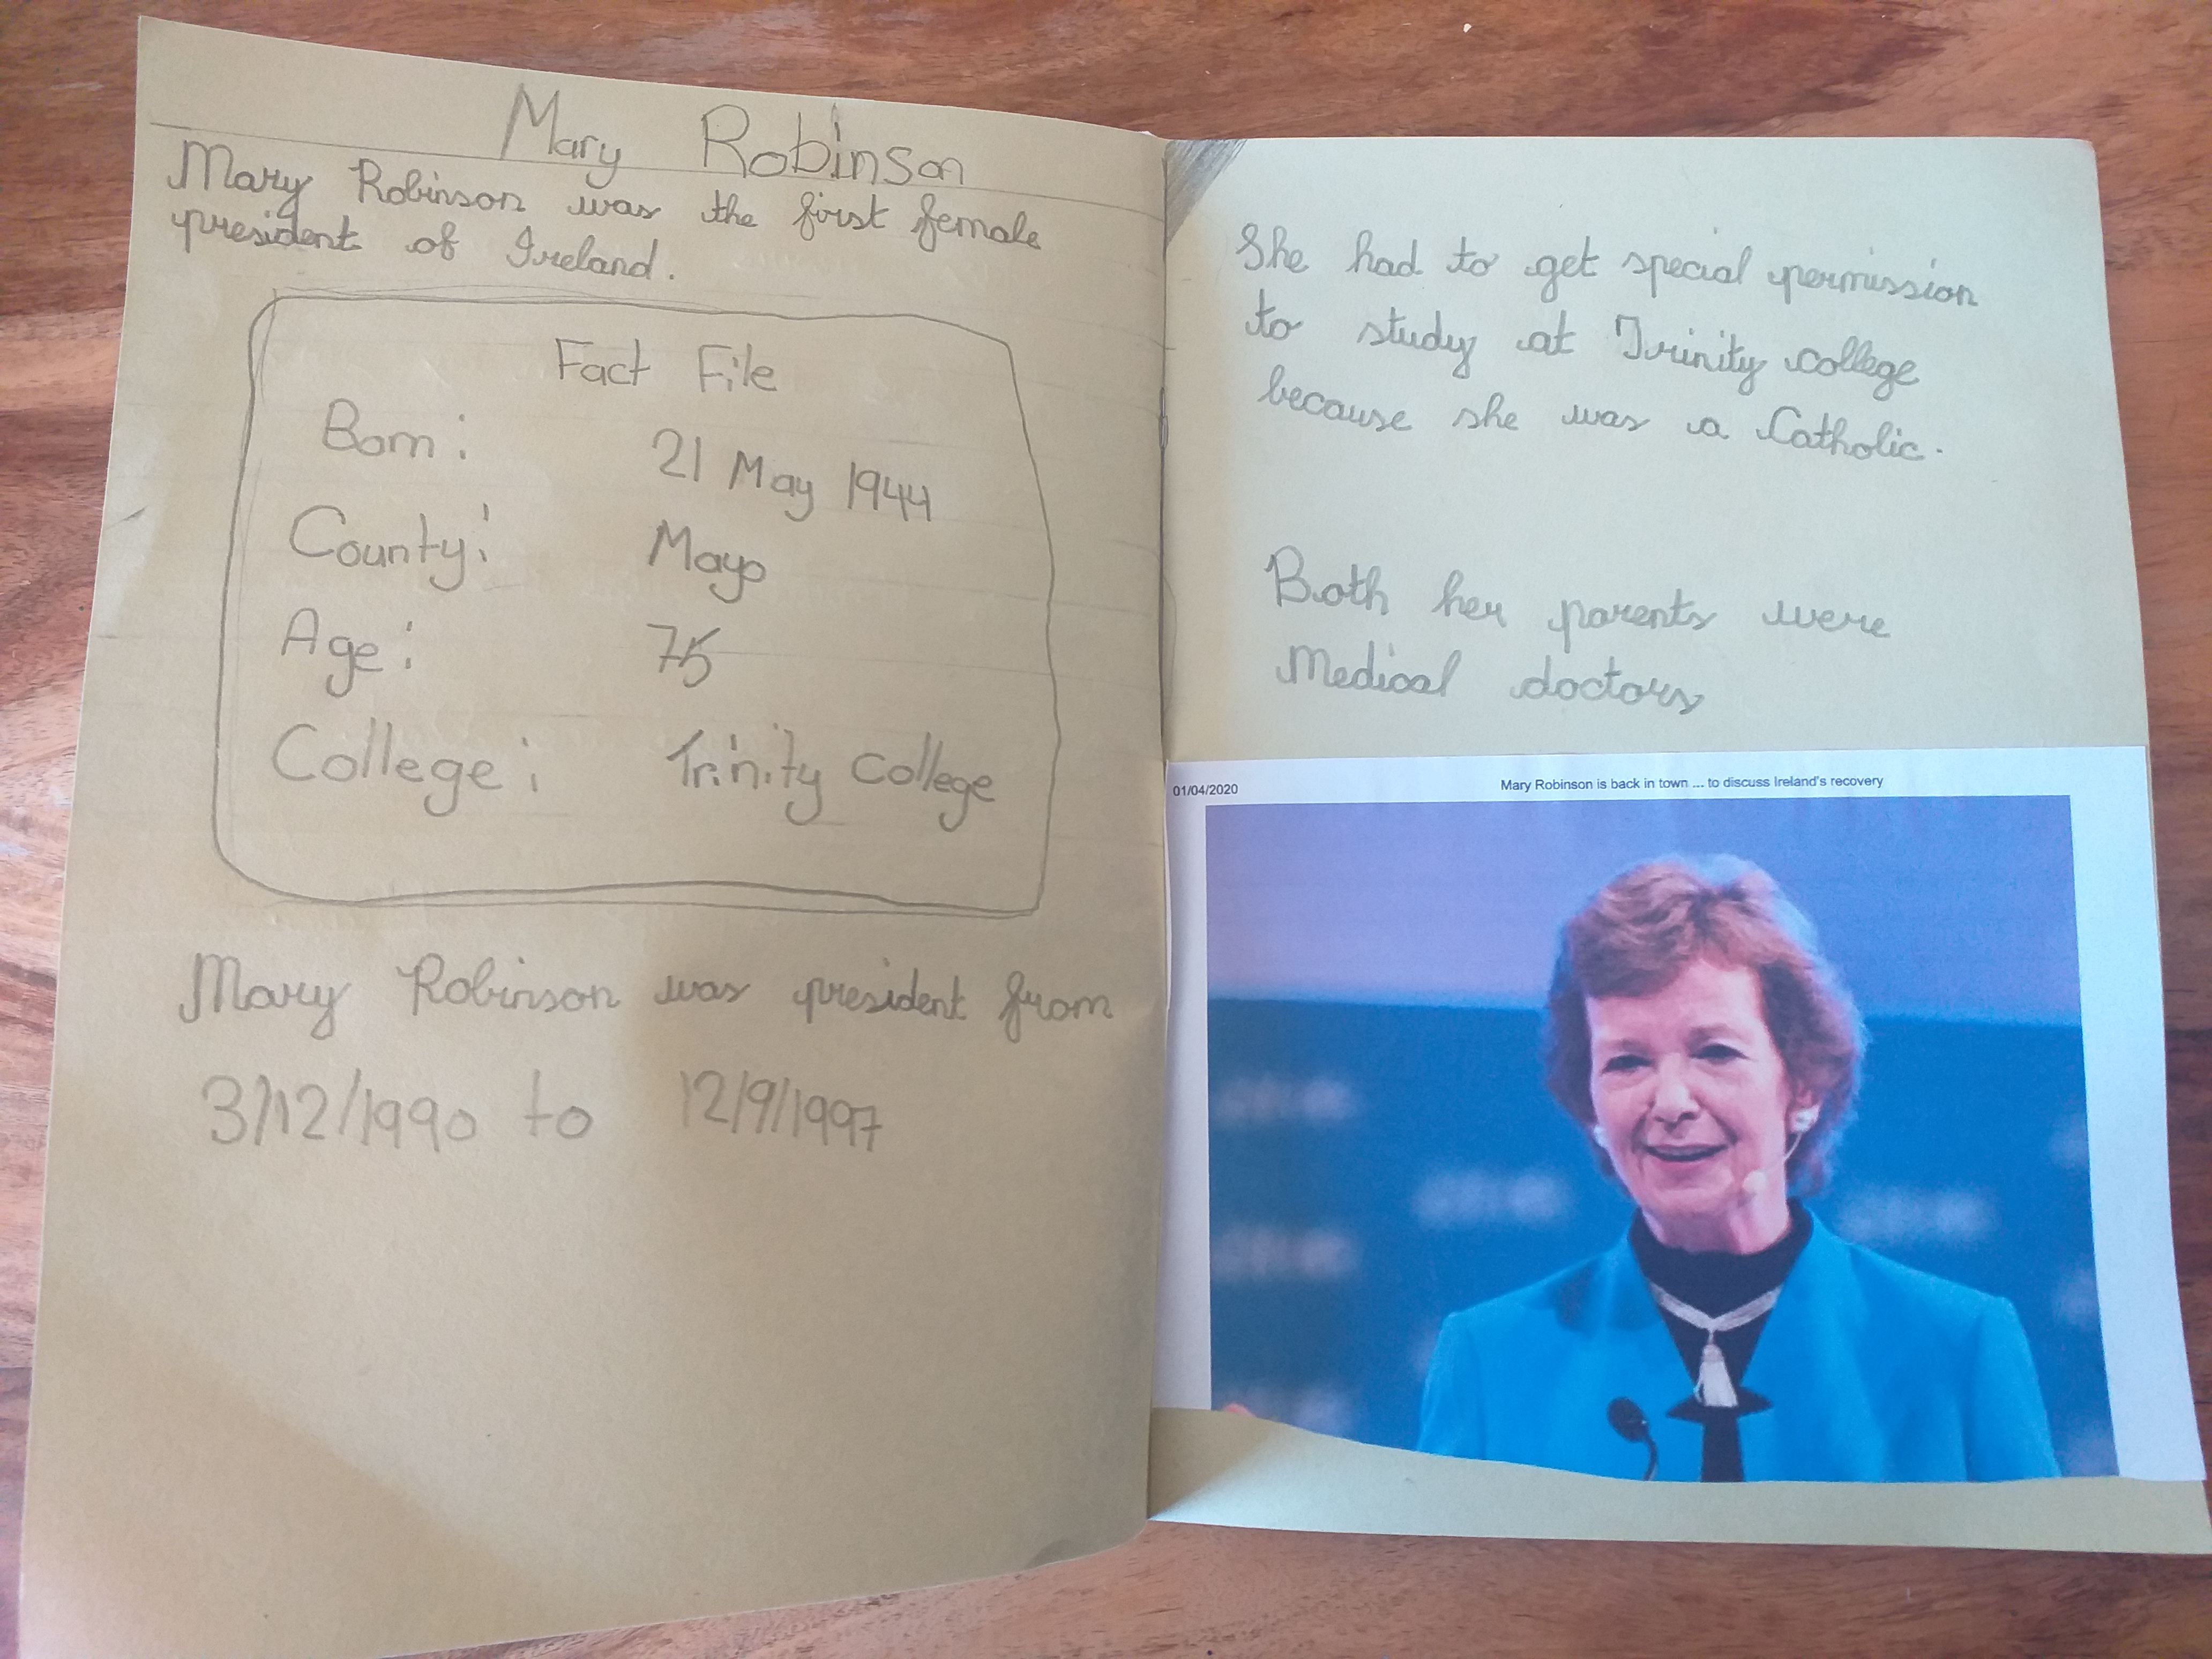 Mary Robinson
Mary Robinson was the first female
president of Ireland.
Fact File
Born: 21 May 1944
County: Mayo
Age: 75
College: Trinity College
Mary Robinson was president from
3/12/1990 to 12/9/1997
She had to get special permission
to study at Trinity college
because she was a Catholic.
Both her parents were
Medical doctors
01/04/2020 Mary Robinson is back in town ... to discuss Ireland's recovery